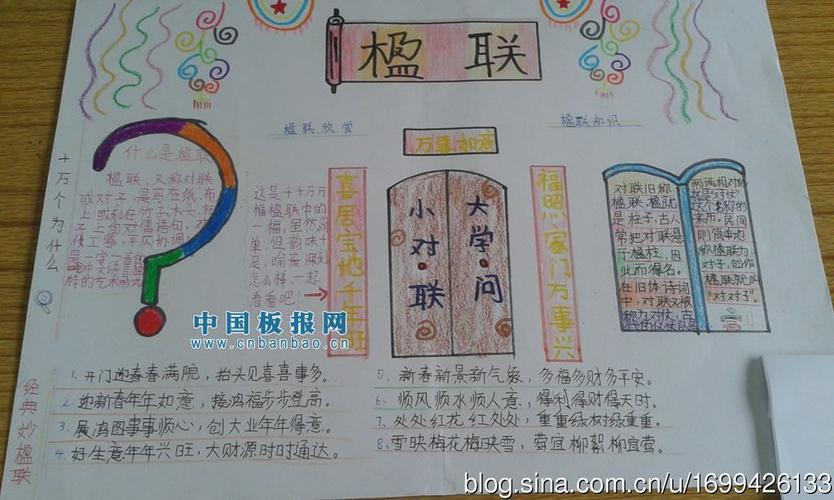 楹联
楹联欣赏
楹联知识
万事如意
十万个为什么
什么是楹联
楹联,又称对联
或对子,是写在纸、布
上或刻在竹子、木头、柱
子上的对偶语句,
仗工整,平仄协调
是一字一音的
这是千千万万
幅楹联中的
一幅。虽然简
单,但韵味十
足,
怎么样,一起
看看吧!
喜居宝地千年旺
小对·联
大学·问
福照家门万事兴
对联旧称
楹联,楹就
是柱子,古人
常把对联悬
于楹柱,因
此而得名。
在旧体诗词
中,对联又被
称为对仗,古
两两相对的
来历。民间
则简单地
称楹联为
对子,创作
楹联就叫
“对对子”。
中国板报网
www.cnbanbao.cn
经典妙楹联
1、开门迎春春满院,抬头见喜喜事多。
2、迎新春年年如意,接鸿福步步登高。
3、展鸿图事事顺心,创大业年年得意。
4、好生意年年兴旺,大财源时时通达。
5、新春新景新气象,多福多财多平安。
6、顺风顺水顺人意,得利得财得天时。
7、处处红花红处处,重重绿树绿重重。
8、雪映梅花梅映雪,莺宜柳絮柳宜莺。
blog.sina.com.cn/u/1699426133